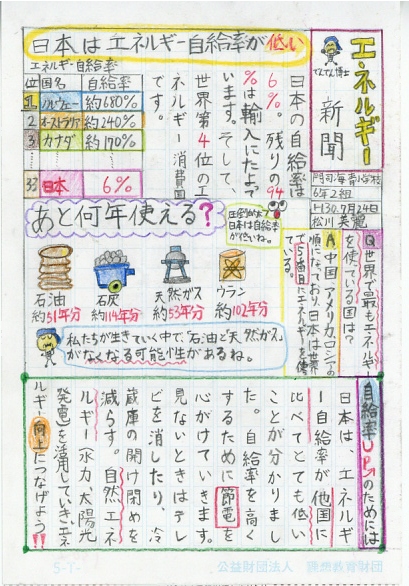 エネルギー
新聞
てんてん博士
門司海青小学校
6年2組
H30.7月24日
日本はエネルギー自給率が低い
エネルギー自給率
位 国名 自給率
1. ノルウェー 約680%
2. オーストラリア 約240%
3. カナダ 約170%
33. 日本 6%
日本の自給率は
6%。残りの94
%は輸入にたよって
います。そして、
世界第4位のエ
ネルギー消費国
です。
Q世界で最もエネルギー
を使っている国は?
A中国、アメリカ、ロシアの
順になっており、日本は世界
で5番目にエネルギーを使っ
ている。
あと何年使える?
圧倒的に
日本は自給率
が低いね。
石油
約51年分
石炭
約114年分
天然ガス
約53年分
ウラン
約102年分
私たちが生きていく中で「石油」と「天然ガス」
がなくなる可能性があるね。
自給率UPのためには
日本は、エネルギ
ー自給率が他国に
比べてとても低い
ことが分かりまし
た。自給率を高く
するために節電を
心がけていきます。
見ないときはテレ
ビを消したり、冷
蔵庫の開け閉めを
減らす。自然エネ
ルギー(水力、太陽光
発電)を活用していき、エネ
ルギー向上につなげよう!!
S-1-
公益財団法人 理想教育財団